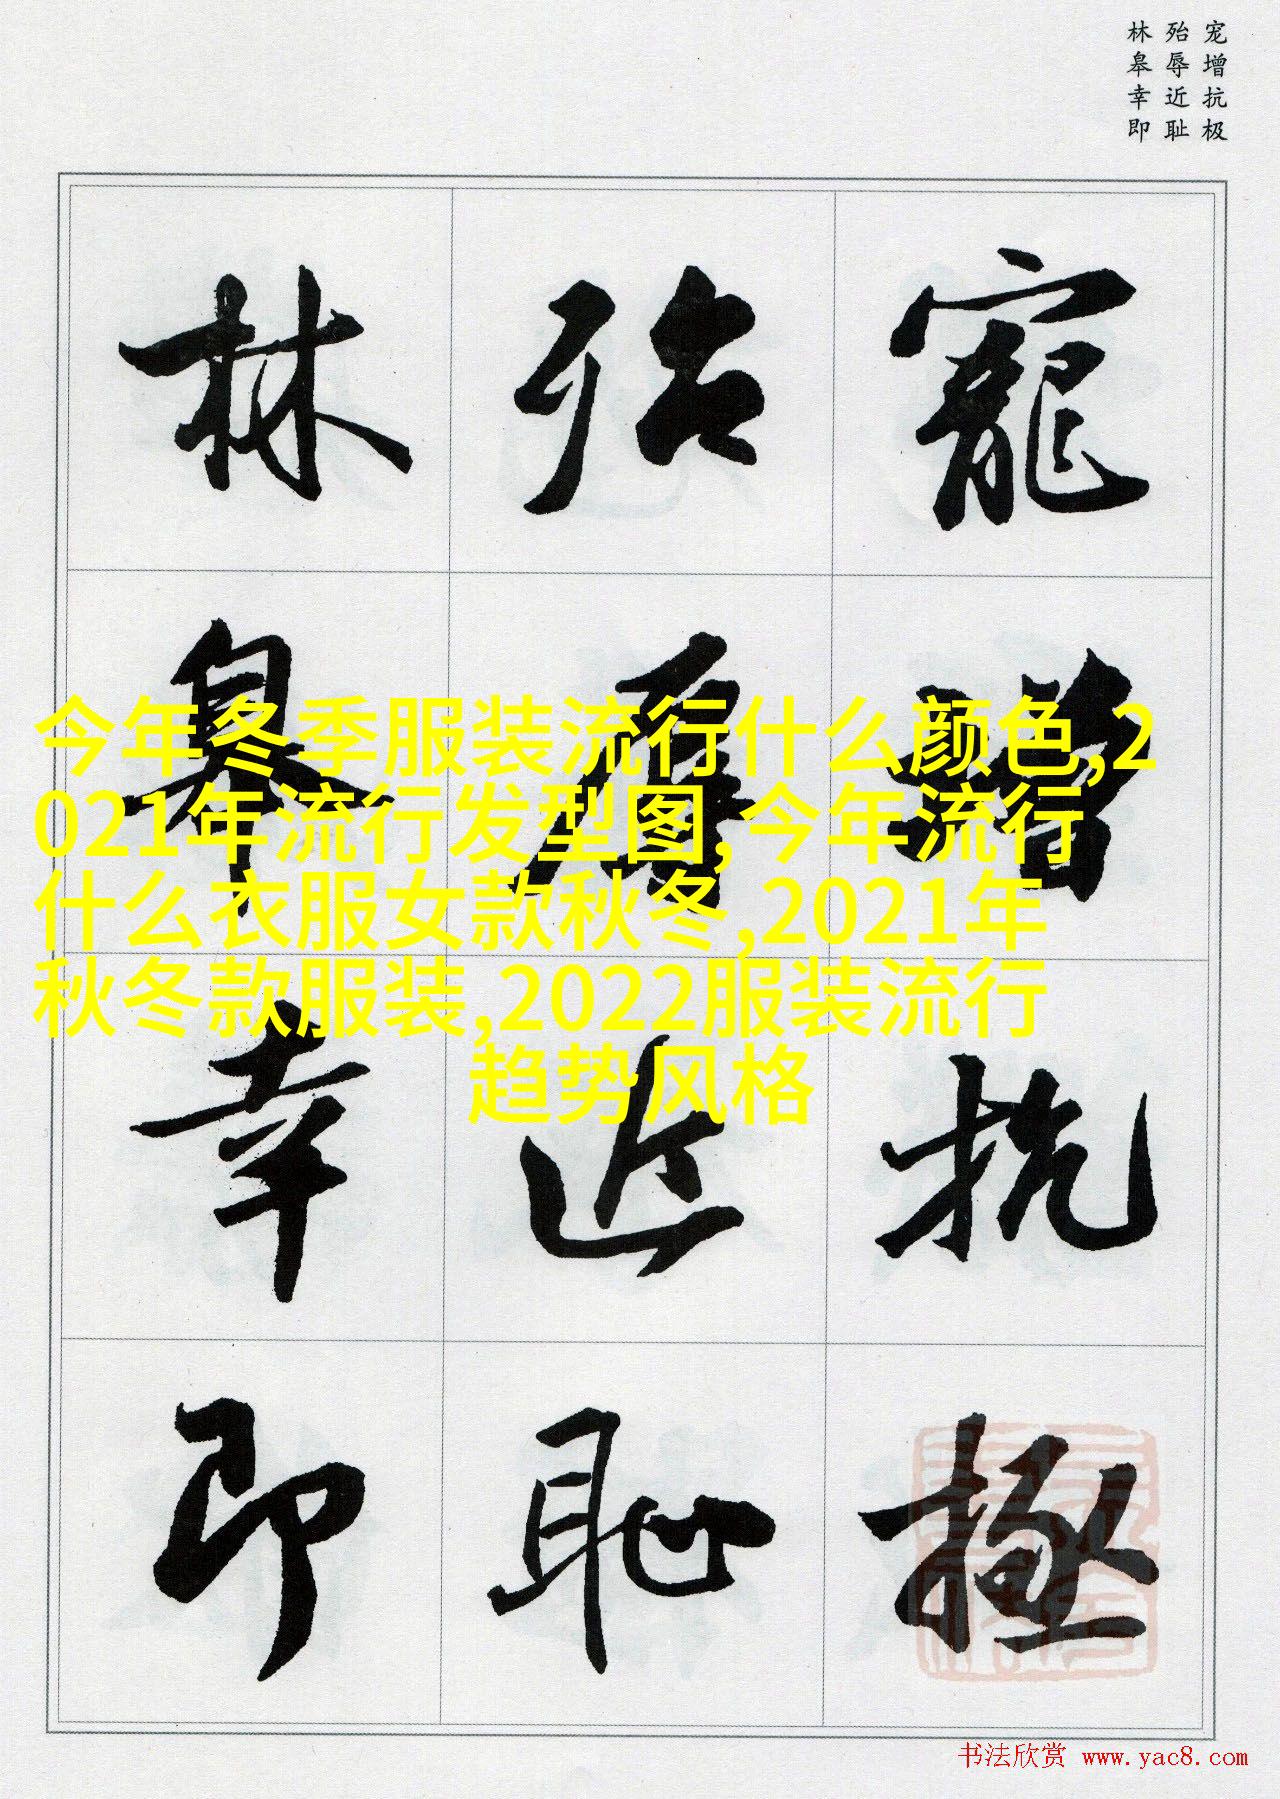 宠增抗极
殆辱近耻
林皋幸即
寵增抗極
殆辱近恥
林皋幸即
今年冬季服装流行什么颜色,2
021年流行发型图,今年流行
什么衣服女款秋冬,2021年
秋冬款服装,2022服装流行
趋势风格
书法欣赏 www.yac8.com